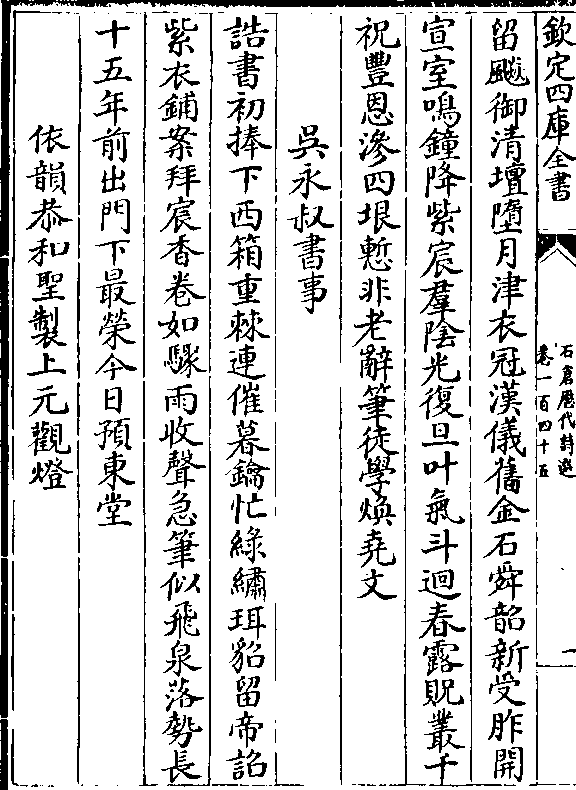 欽定四庫全書
石倉歷代詩選
卷一百四十五
一
留飈御清壇墮月津衣冠漢儀舊金石舜韶新受胙開
宣室鳴鐘降紫宸羣陰光復旦叶氣斗迴春露貺叢千
祝豐恩滲四垠慙非老辭筆徒學煥堯文
吳永叔書事
誥書初捧下西箱重棘連催暮鑰忙綠繡珥貂留帝詔
紫衣鋪案拜宸香卷如驟雨收聲急筆似飛泉落勢長
十五年前出門下最榮今日預東堂
依韻恭和聖製上元觀燈